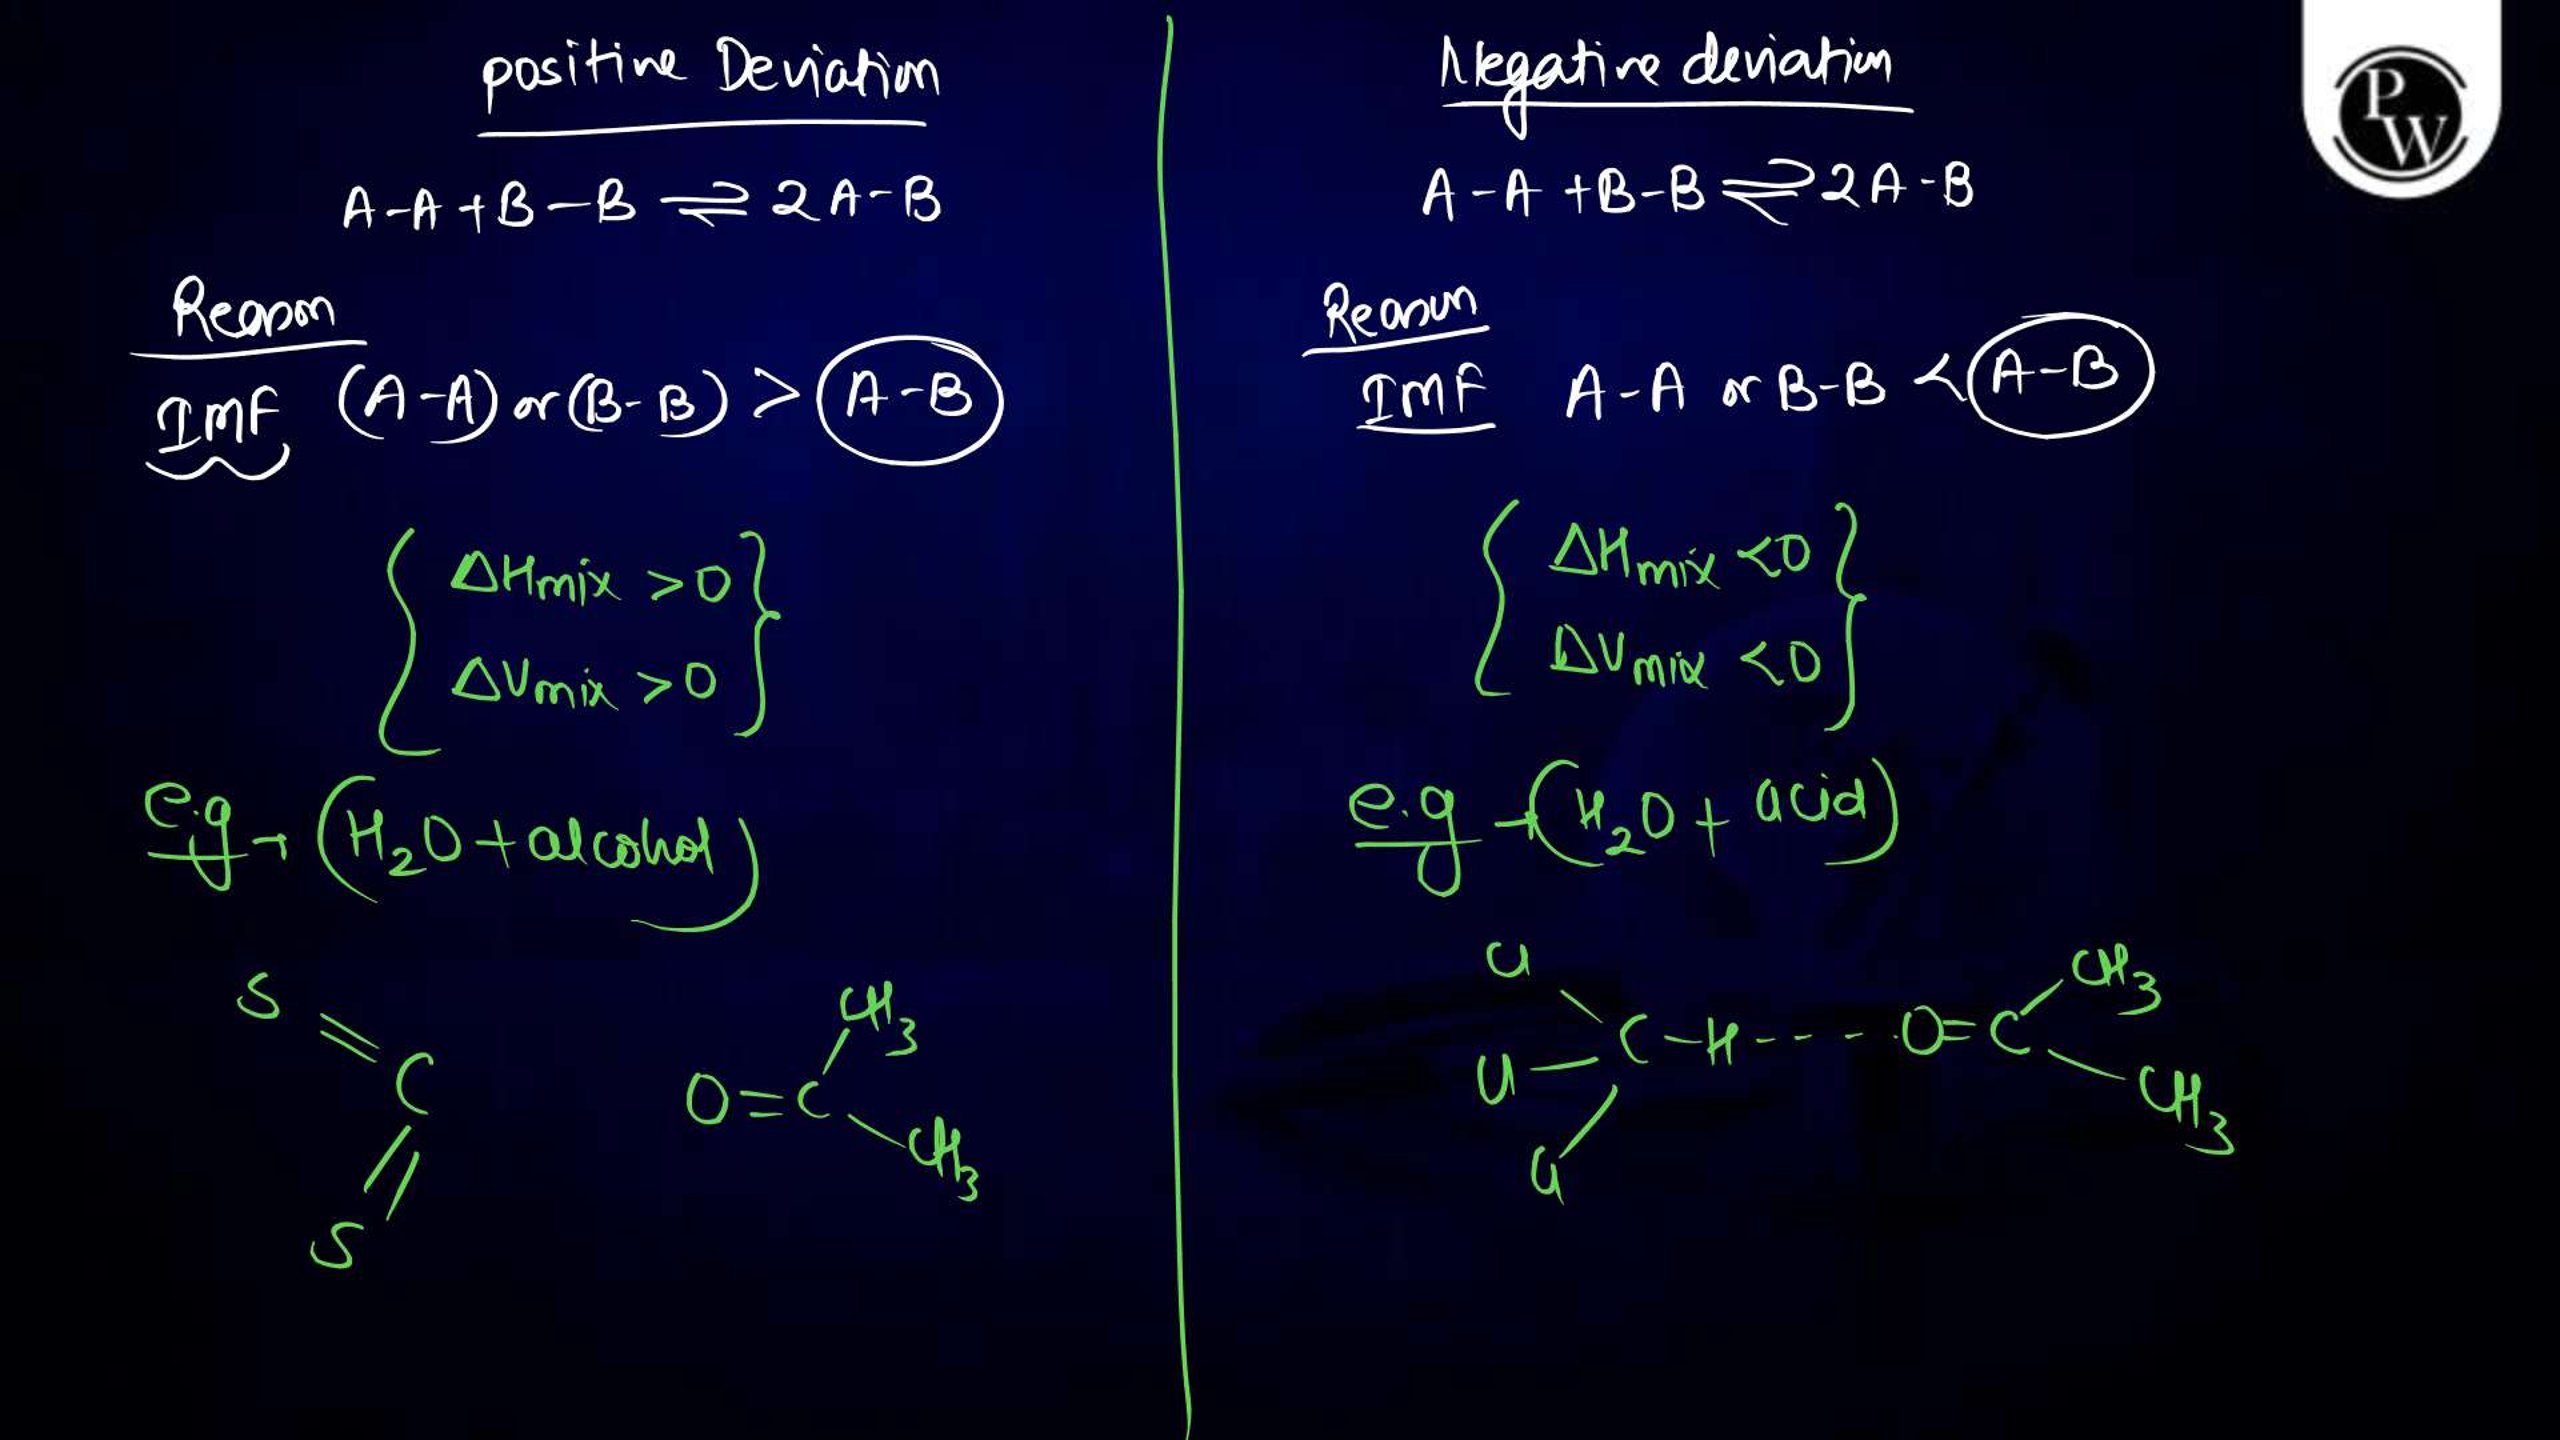 positive Deviation
A-A+B-B ⇌ 2A-B
Reason
IMF (A-A) or (B-B) > A-B
ΔHmix >0
ΔVmix >0
e.g → (H2O + alcohol)
S
=
C
=
S
CH3
O=C
CH3
Negative deviation
A-A +B-B ⇌ 2A-B
Reason
IMF A-A or B-B < A-B
ΔHmix <0
ΔVmix <0
e.g → (H2O + acid)
Cl
CH3
C-H---- O=C
Cl
CH3
Cl
PW